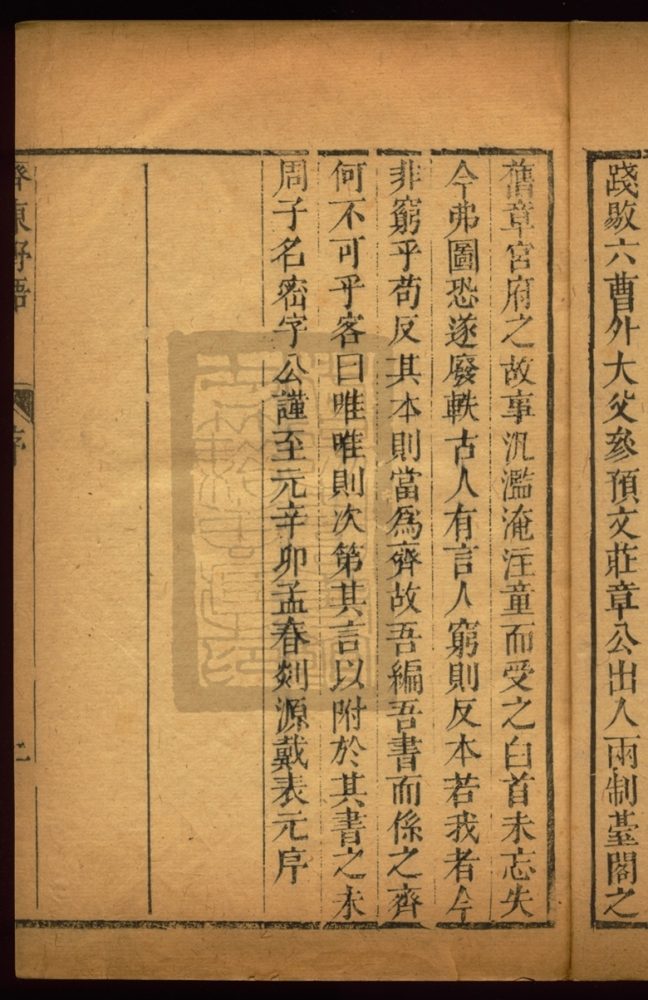 踐敭六曹外大父參預文莊章公出入兩制臺閣之
舊章官府之故事汎濫淹注童而受之白首未忘失
今弗圖恐遂廢軼古人有言人窮則反本若我者今
非窮乎苟反其本則當爲齊故吾編吾書而係之齊
何不可乎客曰唯唯則次第其言以附於其書之末
周子名密字公謹至元辛卯孟春剡源戴表元序
齊東野語
序
二